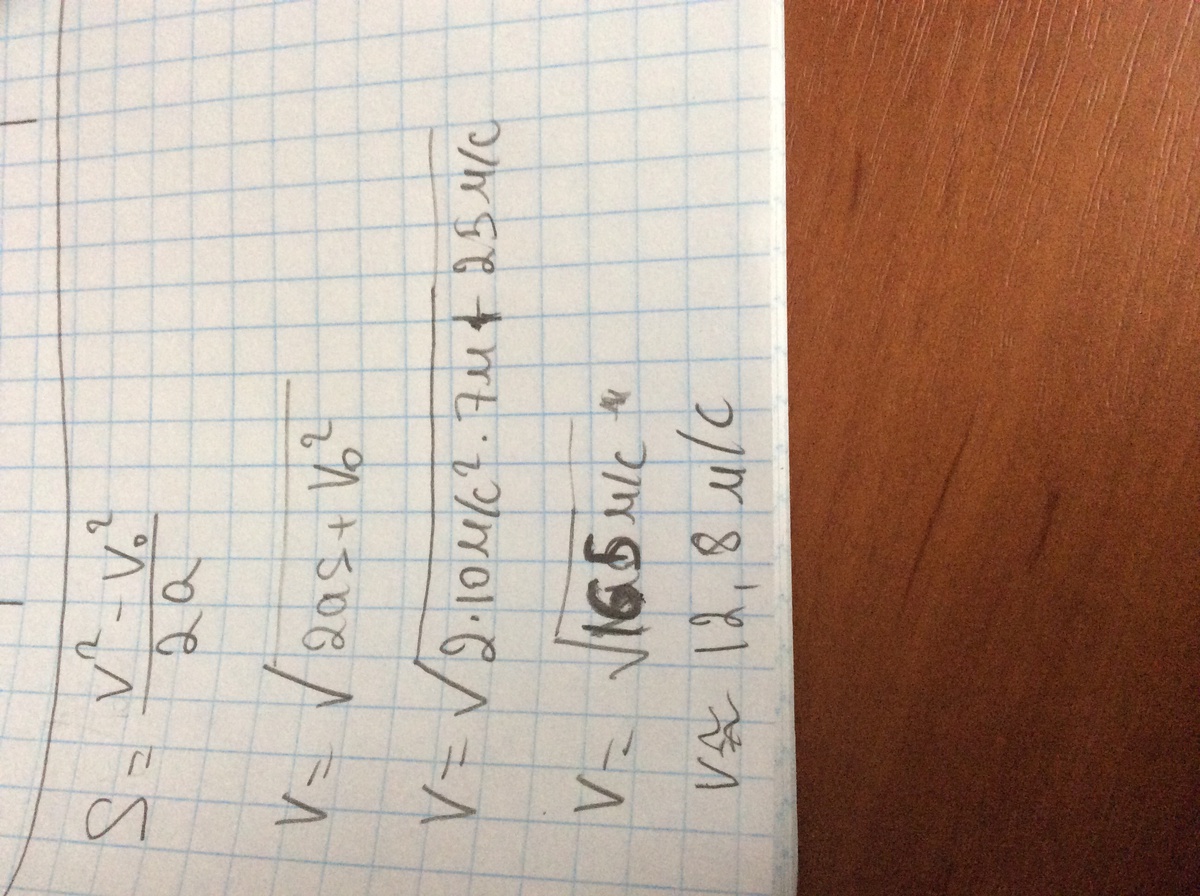 S = (V² - V₀²) / 2a
V = √(2as + V₀²)
V = √(2·10м/с²·7м + 25м/с)
V = √165 м/с
V ≈ 12,8 м/с